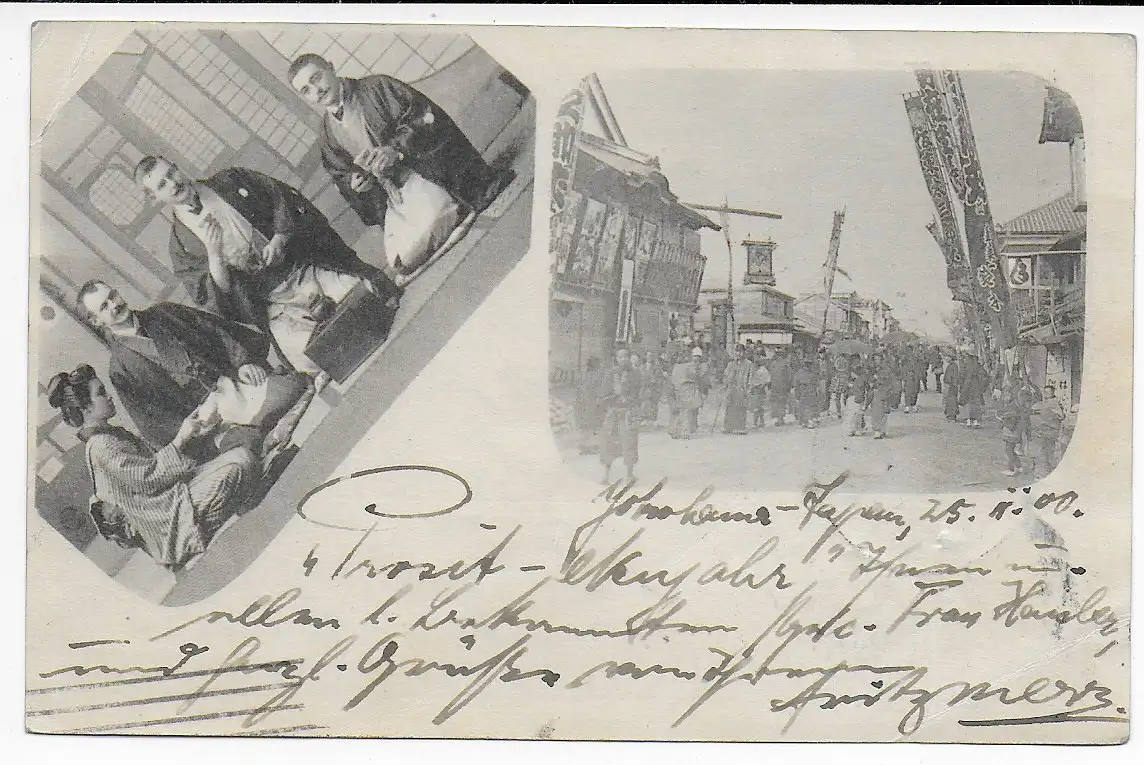 Yokohama-Japan, 25. 11. 00.
"Prosit-Neujahr", Ihnen u.
allen l. Bekannten spec. Frau
und herzl. Grüße von Ihrem
Fritz Merz.